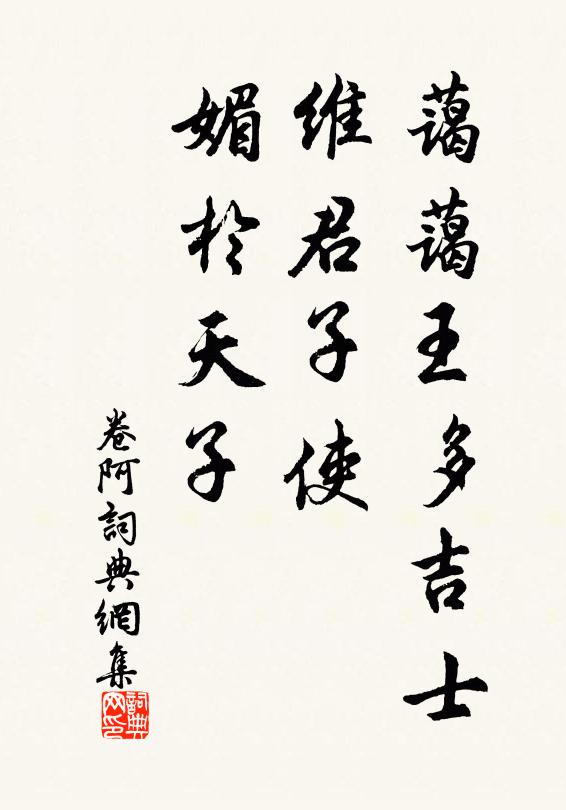 藹藹王多吉士
維君子使
媚於天子
卷阿詞典網集
詞典
网印